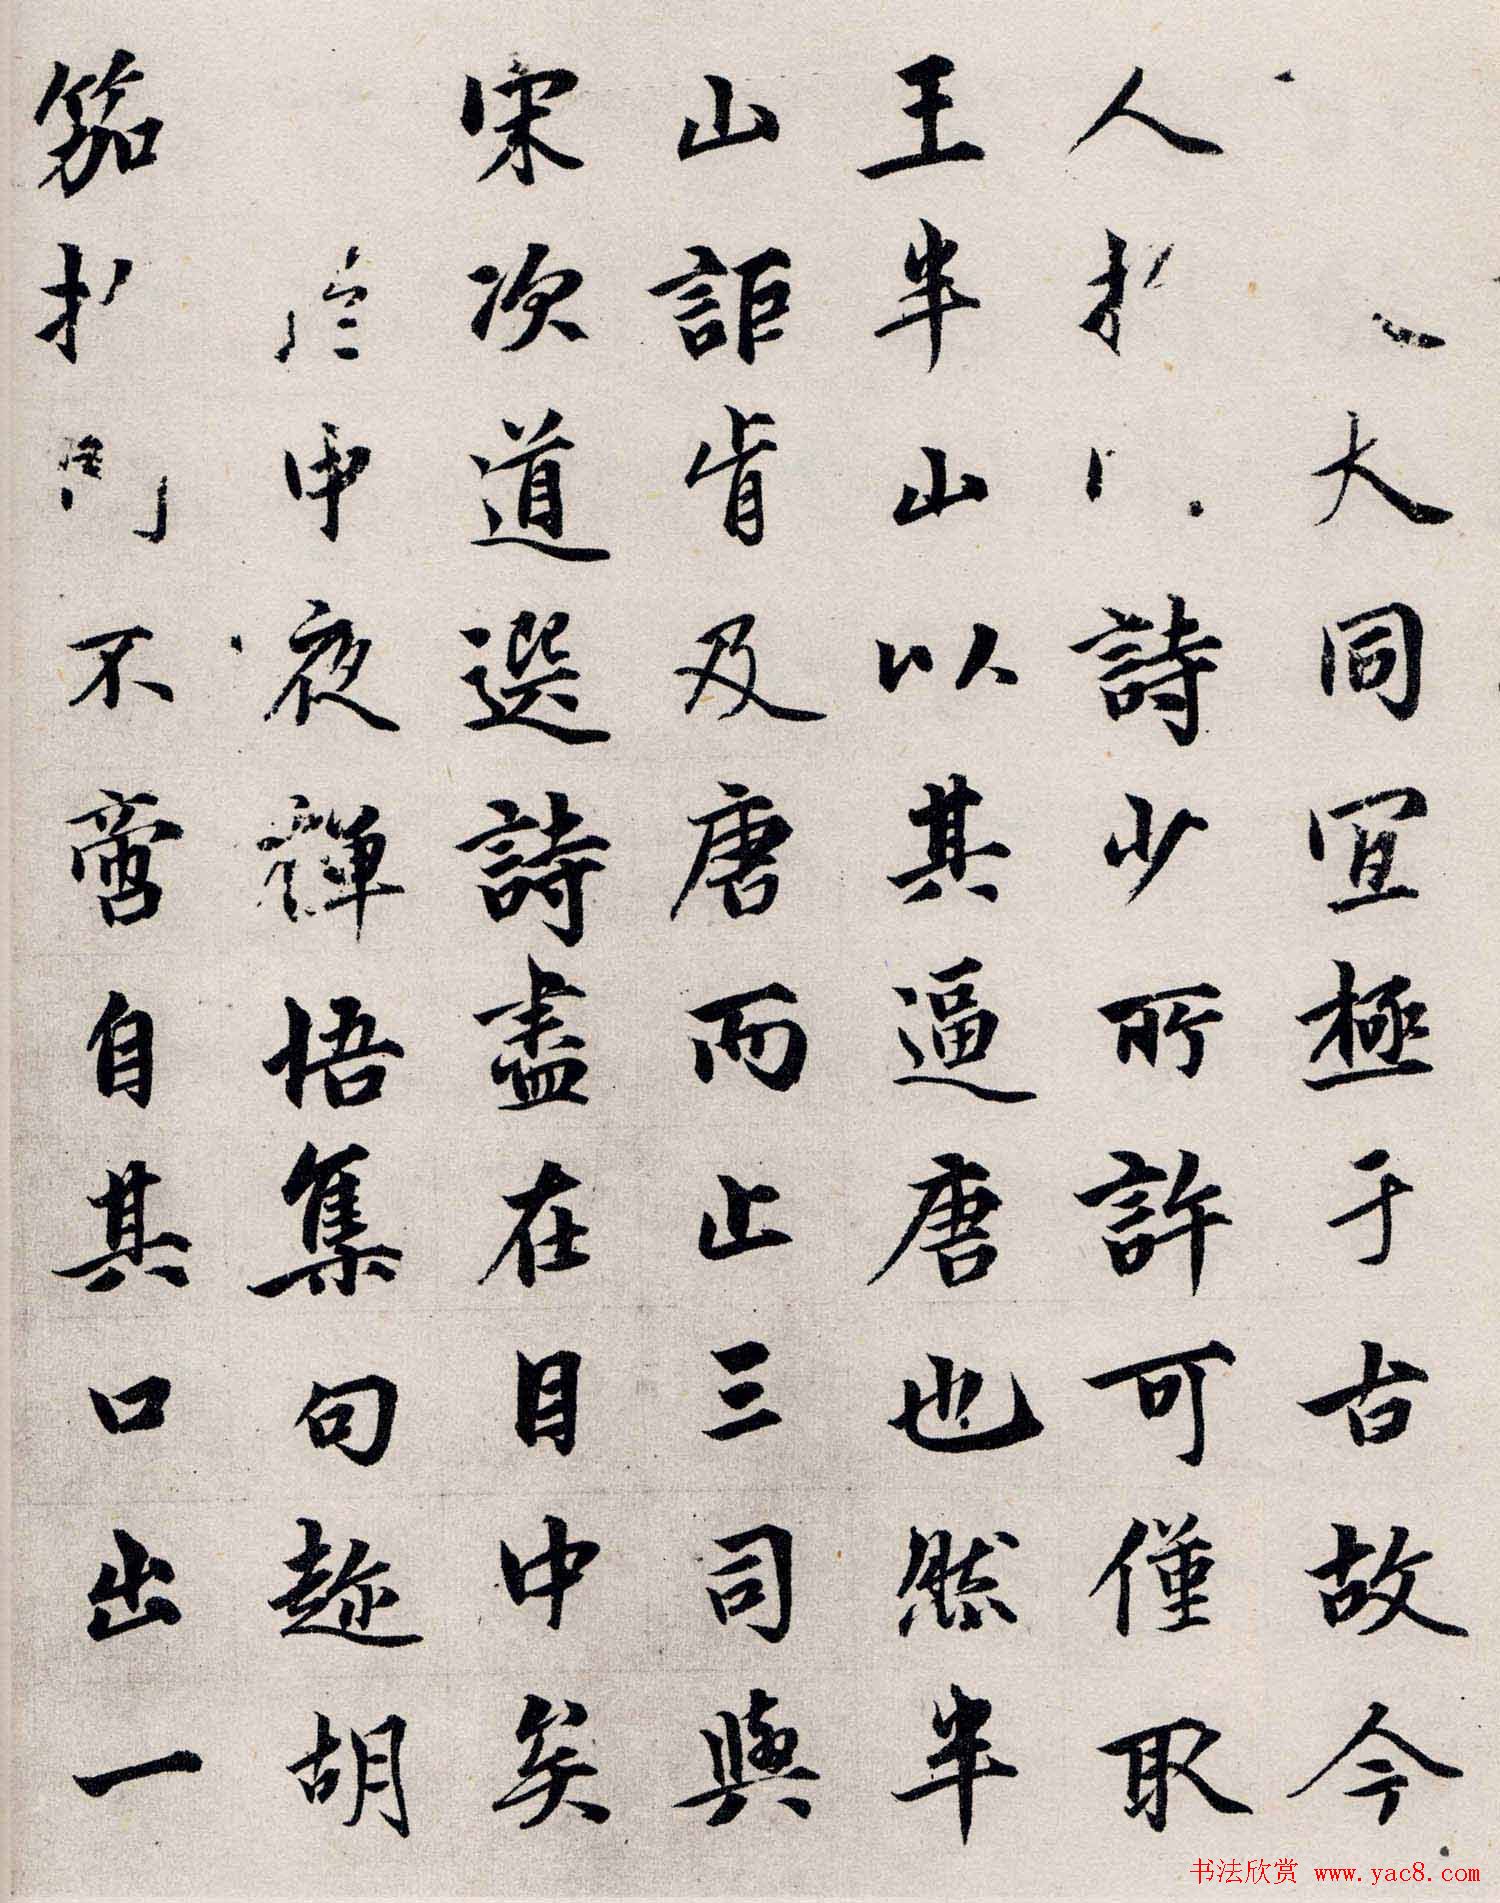 大同冝極于古故今
人詩少所許可僅取
王半山以其逼唐也然半
山詎肯及唐而止三司與
宋次道選詩盡在目中矣
中夜禪悟集句趂胡
笳不啻自其口出一
书法欣赏 www.yac8.com